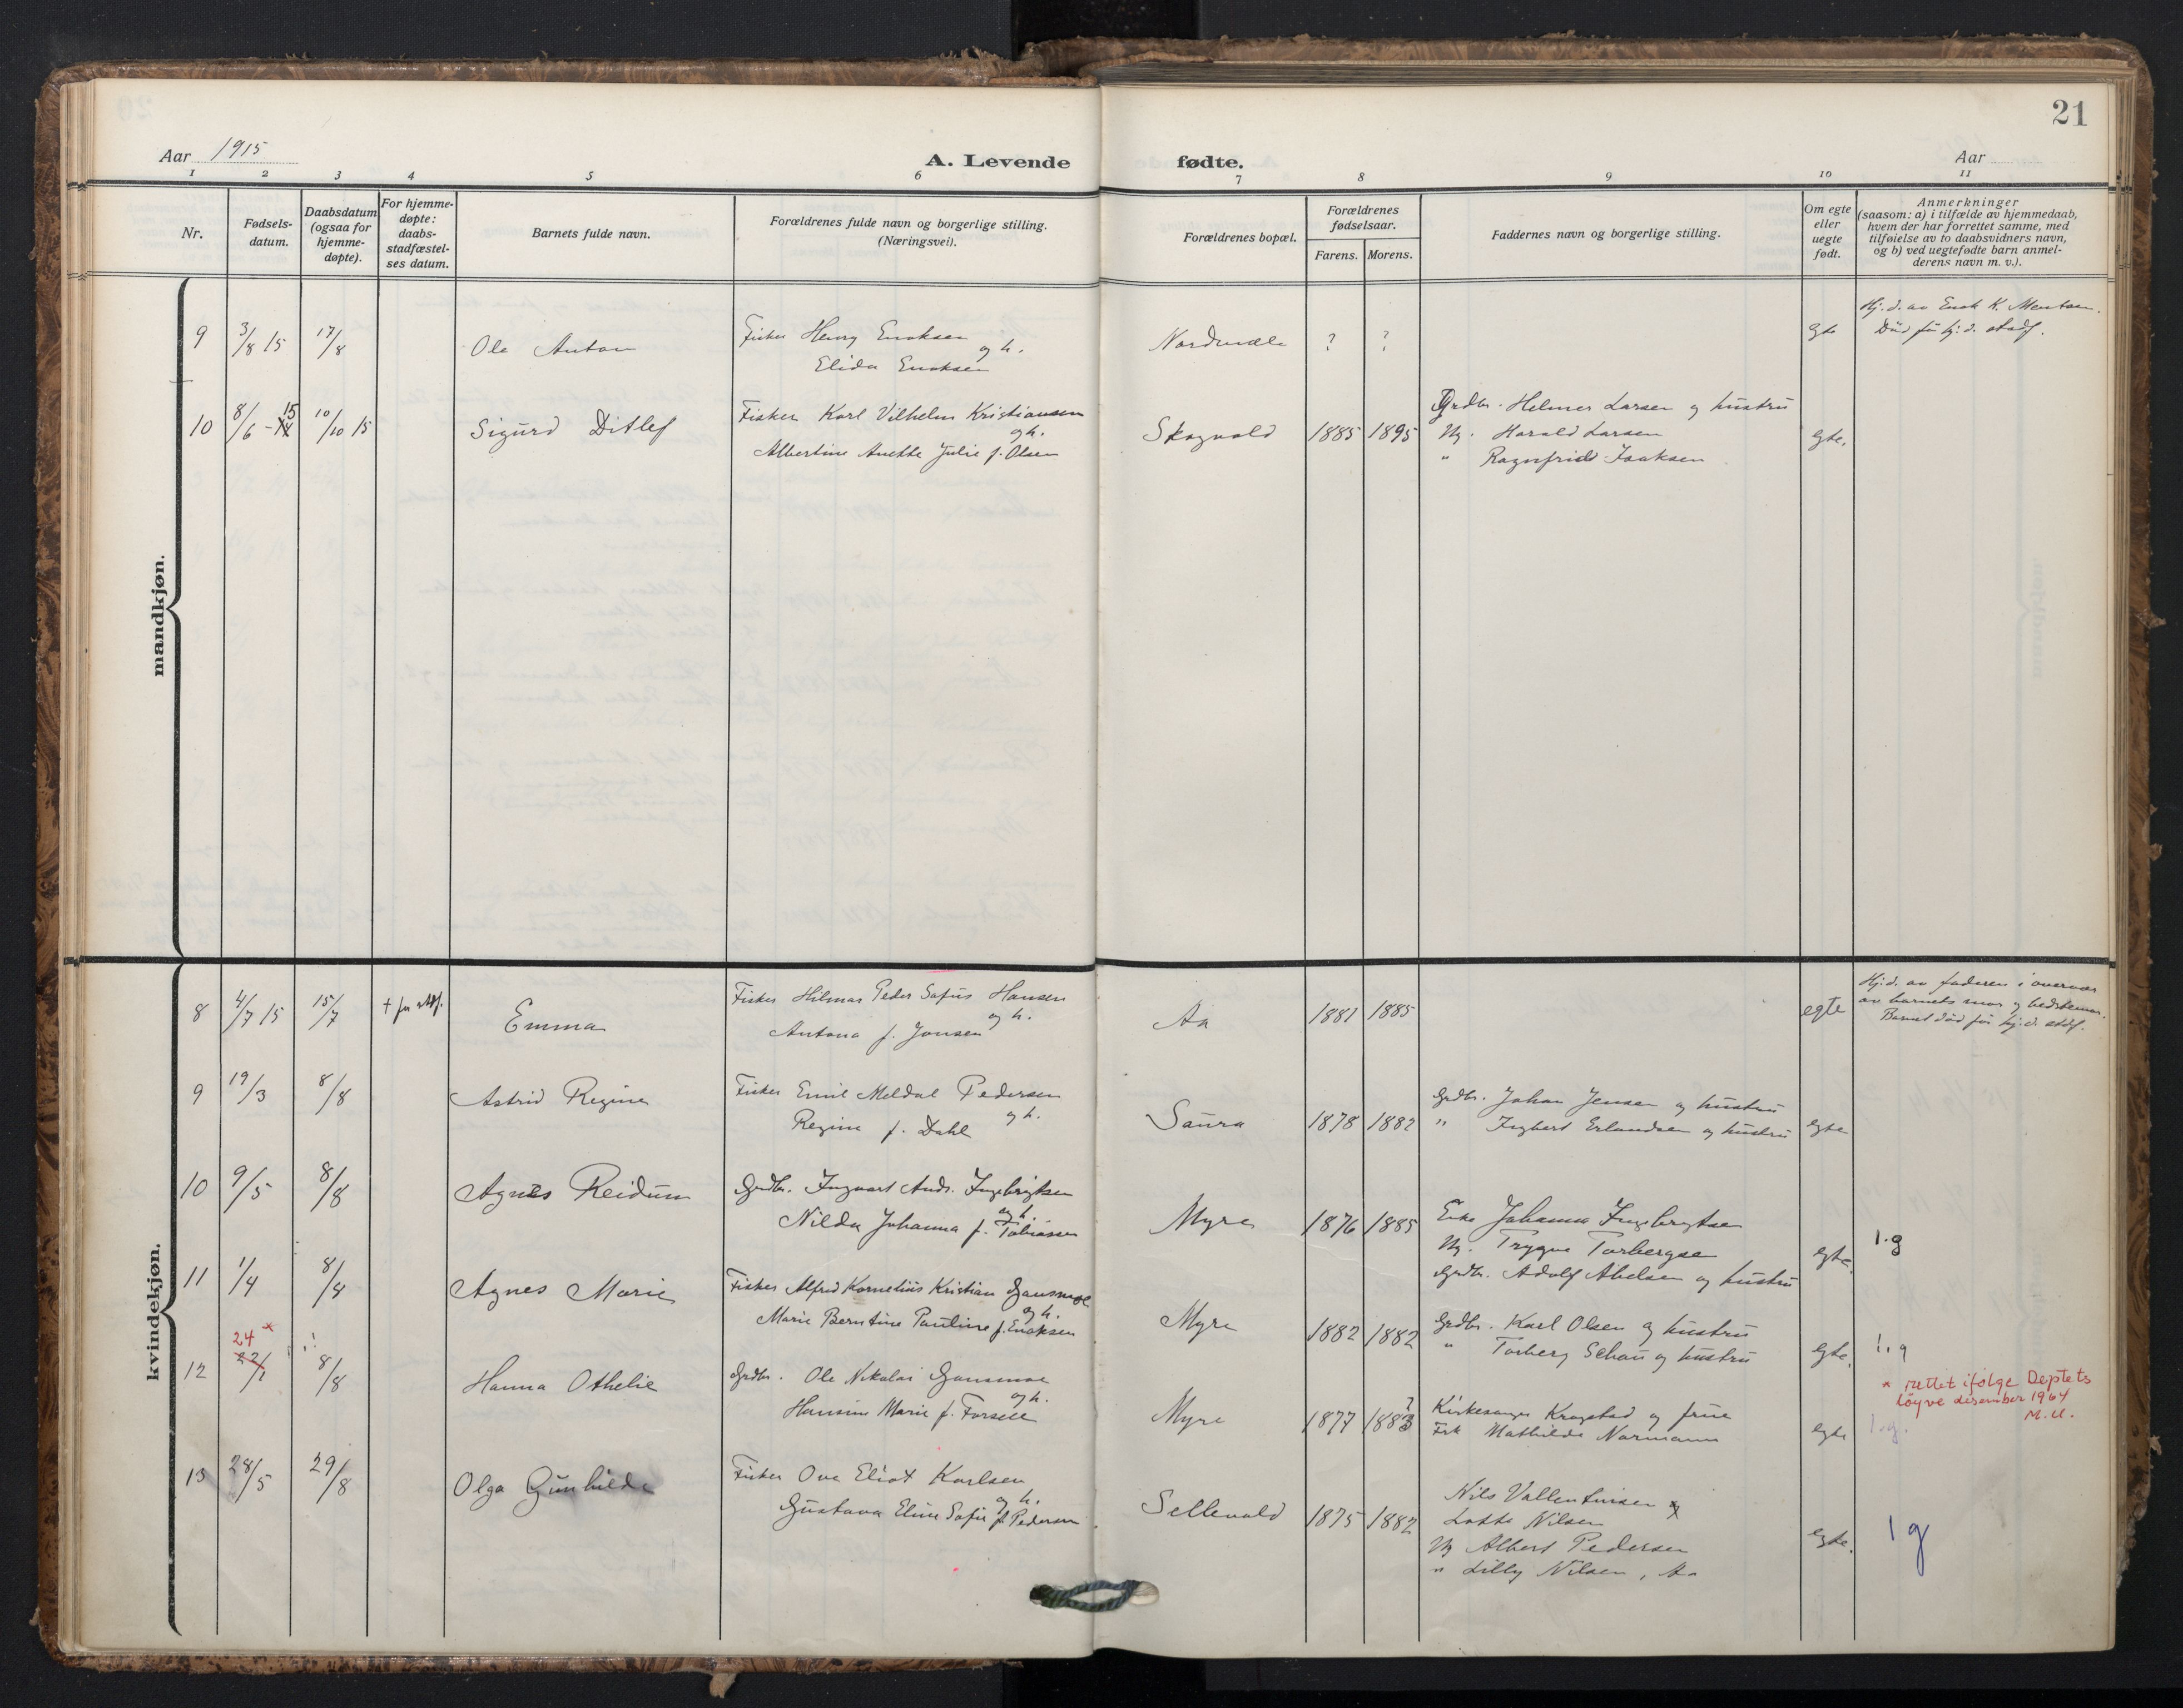 21
Aar 1915
A. Levende fødte.
Aar
1 2 3 4 5 6 7 8 9 10 11
Nr.
Fødsels-
datum.
Daabsdatum
(ogsaa for
hjemme-
døpte).
For hjemme-
døpte:
daabs-
stadfæstel-
ses datum.
Barnets fulde navn.
Forældrenes fulde navn og borgerlige stilling.
(Næringsvei).
Forældrenes bopæl.
Forældrenes
fødselsaar.
Farens. Morens.
Faddernes navn og borgerlige stilling.
Om egte
eller
uegte
født.
Anmerkninger
(saasom: a) i tilfælde av hjemmedaab,
hvem der har forrettet samme, med
tilføielse av to daabsvidners navn,
og b) ved uegtefødte barn anmel-
derens navn m. v.).
mandkjøn.
9 3/8 15 17/8 Ole Anton
Fisker Henry Enoksen
og h.
Elida Enoksen
Nordmæle ? ? egte
Hj. d. av Enok K. Mentsen.
Død før hj. d. stadf.
10 8/6 -15 10/10 15 Sigurd Ditlef
Fisker Karl Vilhelm Kristiansen
og h.
Albertine Anette Julie f. Olsen
Skogvold 1885 1895
Grdbr. Helmer Larsen og hustru
Ug. Harald Larsen
" Ragnfrid Isaksen
egte.
kvindekjøn.
8 4/7 15 15/7 + før stdf. Emma
Fisker Hilmar Peder Sofus Hansen
og h.
Antona f. Jonsen
Aa 1881 1885 egte
Hj. d. av faderen i overvær
av barnets mor og bedstemor.
Barnet død før hj. d. stdf.
9 19/3 8/8 Astrid Regine
Fisker Emil Meldal Pedersen
og h.
Regine f. Dahl
Saura 1878 1882
Grdbr. Johan Jensen og hustru
" Ingbert Erlandsen og hustru
egte
10 9/5 8/8 Agnes Reidun
Grdbr. Ingvart Andr. Ingebrigtsen
og h.
Nilda Johanna f. Tobiassen
Myre 1876 1885
Enke Johanna Ingebrigtsen
Ug. Trygve Torbergsen
Grdbr. Adolf Abelsen og hustru
egte.
1.g
11 1/4 8/8 Agnes Marie
Fisker Alfred Kornelius Kristian Gansmoe
og h.
Marie Berntine Pauline f. Enoksen
Myre 1882 1882
Grdbr. Karl Olsen og hustru
" Torberg Schau og hustru
egte.
1.g
12 24* 22/1 8/8 Hanna Othelie
Grdbr. Ole Nikolai Gansmoe
og h.
Hansine Marie f. Forsell
Myre 1877 1883 ?
Kirkesanger Krogstad og frue
Frk Mathilde Normann
egte
* rettet ifølge Deptets
løyve desember 1964
M.U.
1.g.
13 28/5 29/8 Olga Gunhilde
Fisker Ove Eliot Karlsen
og h.
Gustava Eline Sofie f. Pedersen
Sellevold 1875 1882
Nils Vallentinsen og
Lotte Nilsen
Ug Albert Pedersen
" Lilly Nilsen, Aa
egte.
1 g